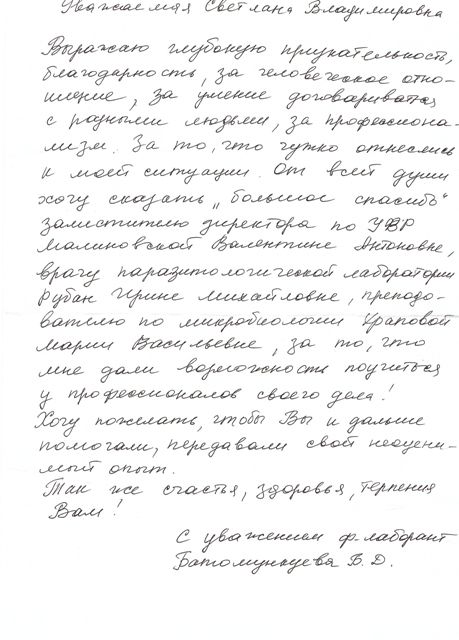 Уважаемая Светлана Владимировна
Выражаю глубокую признательность,
благодарность, за человеческое отно-
шение, за умение договариватся
с разными людьми, за профессиона-
лизм. За то, что чутко отнеслись
к моей ситуации. От всей души
хочу сказать „большое спасибо"
заместителю директора по УВР
Малиновской Валентине Антоновне,
врачу паразитологической лаборатории
Рубан Ирине Михайловне, препода-
вателю по микробиологии Храповой
Марии Васильевне, за то, что
мне дали возможность поучиться
у профессионалов своего дела!
Хочу пожелать, чтобы Вы и дальше
помогали, передавали свой неоцени-
мый опыт.
Так же счастья, здоровья, терпения
Вам!
С уважением ф-лаборант
Батомункуева Б. Д.